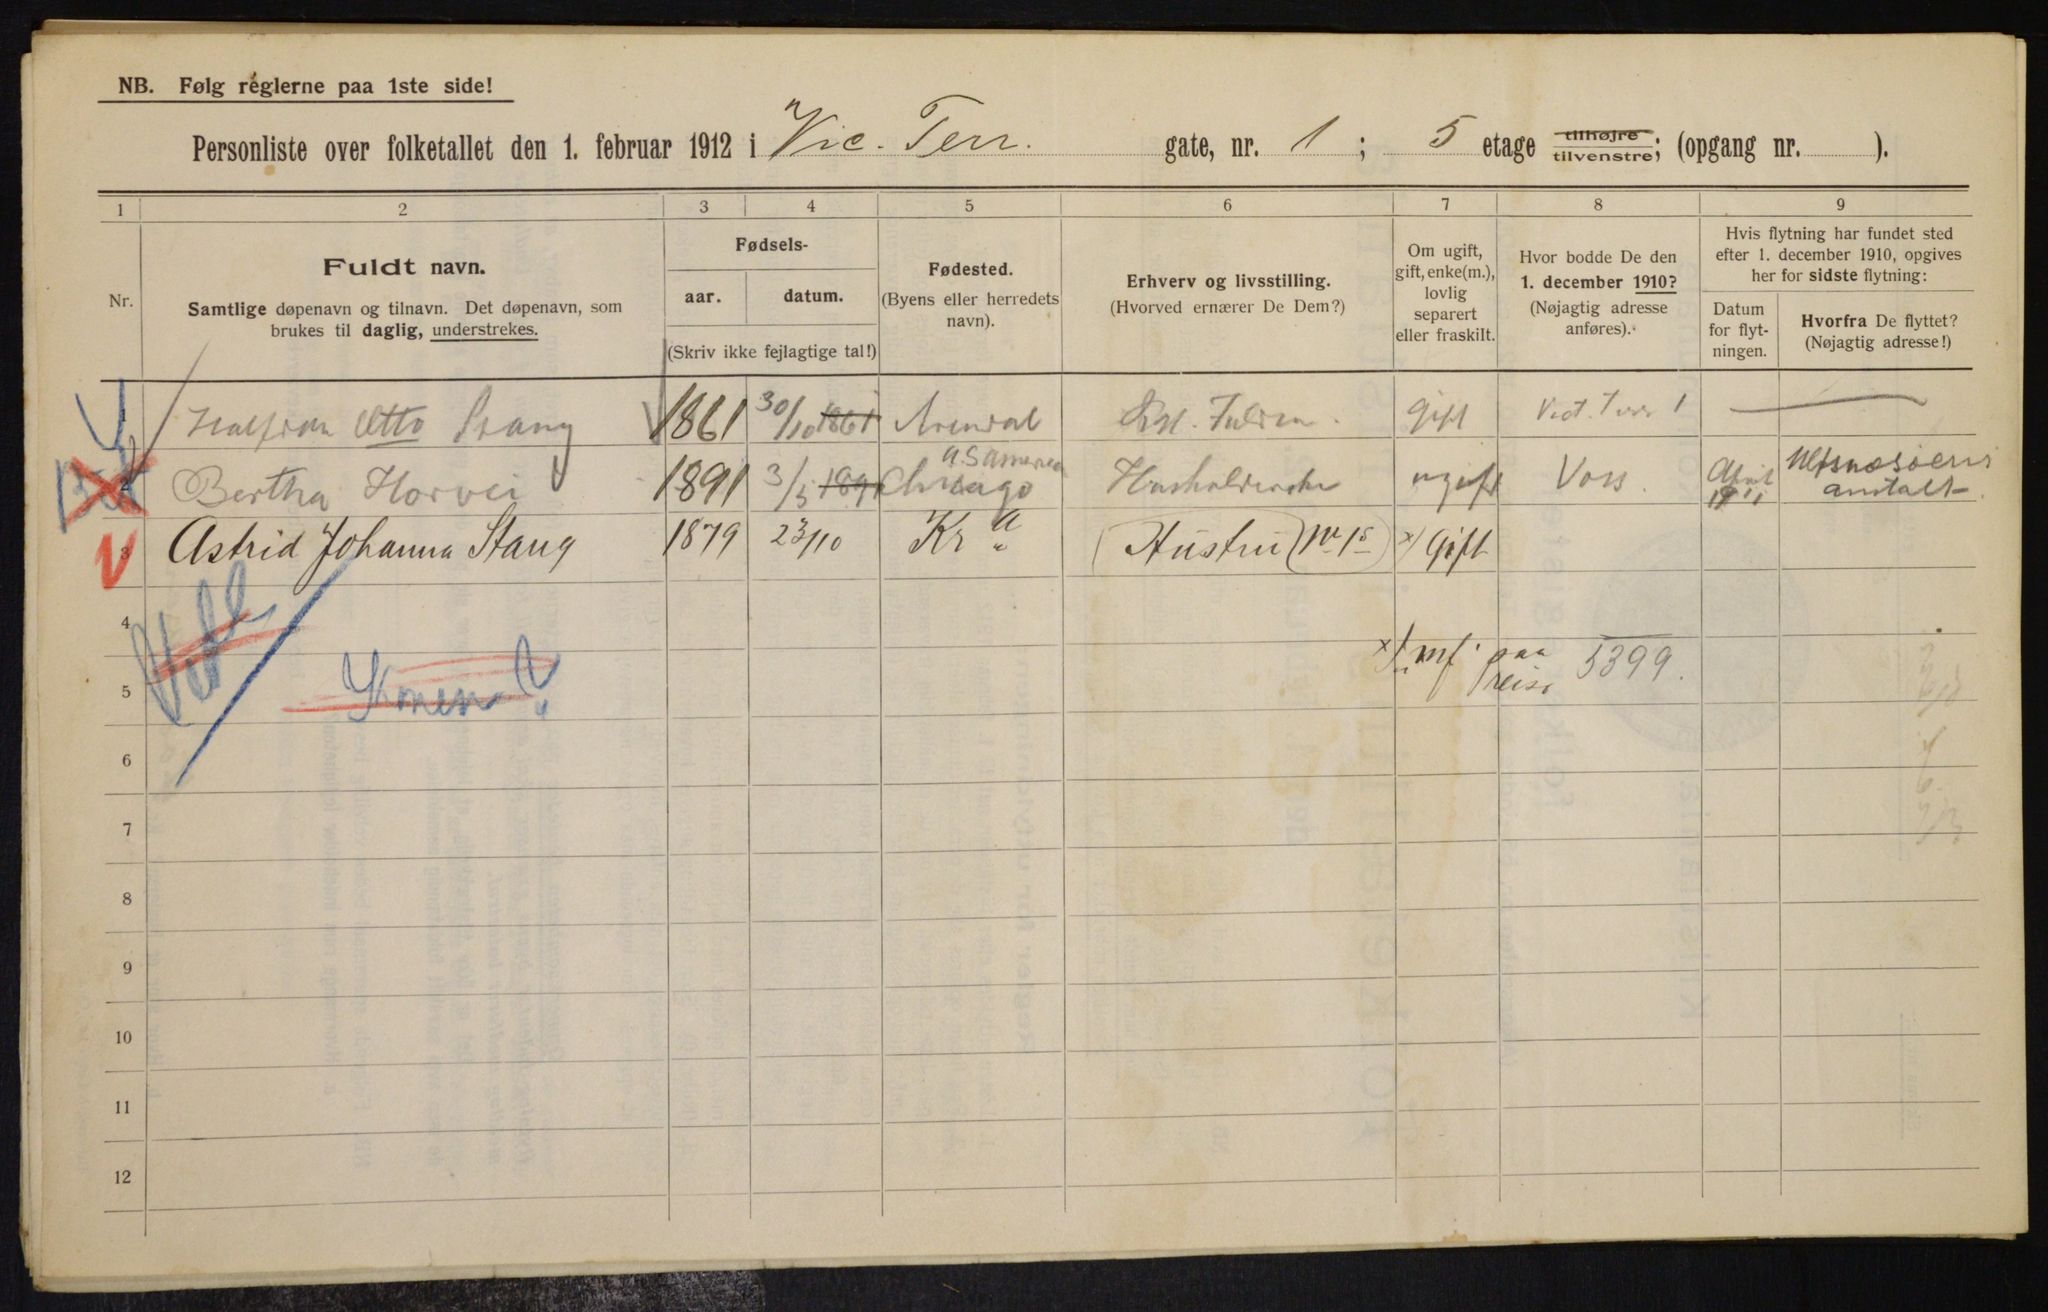 NB. Følg reglerne paa 1ste side!
Personliste over folketallet den 1. februar 1912 i Vic. Terr. gate, nr. 1 ; 5 etage tilhøjre tilvenstre; (opgang nr. ).
1 2 3 4 5 6 7 8 9
Nr.
Fuldt navn.
Samtlige døpenavn og tilnavn. Det døpenavn, som
brukes til daglig, understrekes.
Fødsels-
aar. datum.
(Skriv ikke fejlagtige tal!)
Fødested.
(Byens eller herredets
navn).
Erhverv og livsstilling.
(Hvorved ernærer De Dem?)
Om ugift,
gift, enke(m.),
lovlig
separert
eller fraskilt.
Hvor bodde De den
1. december 1910?
(Nøjagtig adresse
anføres).
Hvis flytning har fundet sted
efter 1. december 1910, opgives
her for sidste flytning:
Datum
for flyt-
ningen.
Hvorfra De flyttet?
(Nøjagtig adresse!)
1 Otto Stang 1861 30/10 1861 Arendal gift Vict. Terr 1
2 Bertha Horvei 1891 3/5 1891 Chicago Husholderske ugift Voss April 1911 anstalt
3 Astrid Johanna Stang 1879 23/10 Kr a Hustru nr 1 x) Gift
4
x) mf. paa reise 5399.
5 Konen?
6
7
8
9
10
11
12